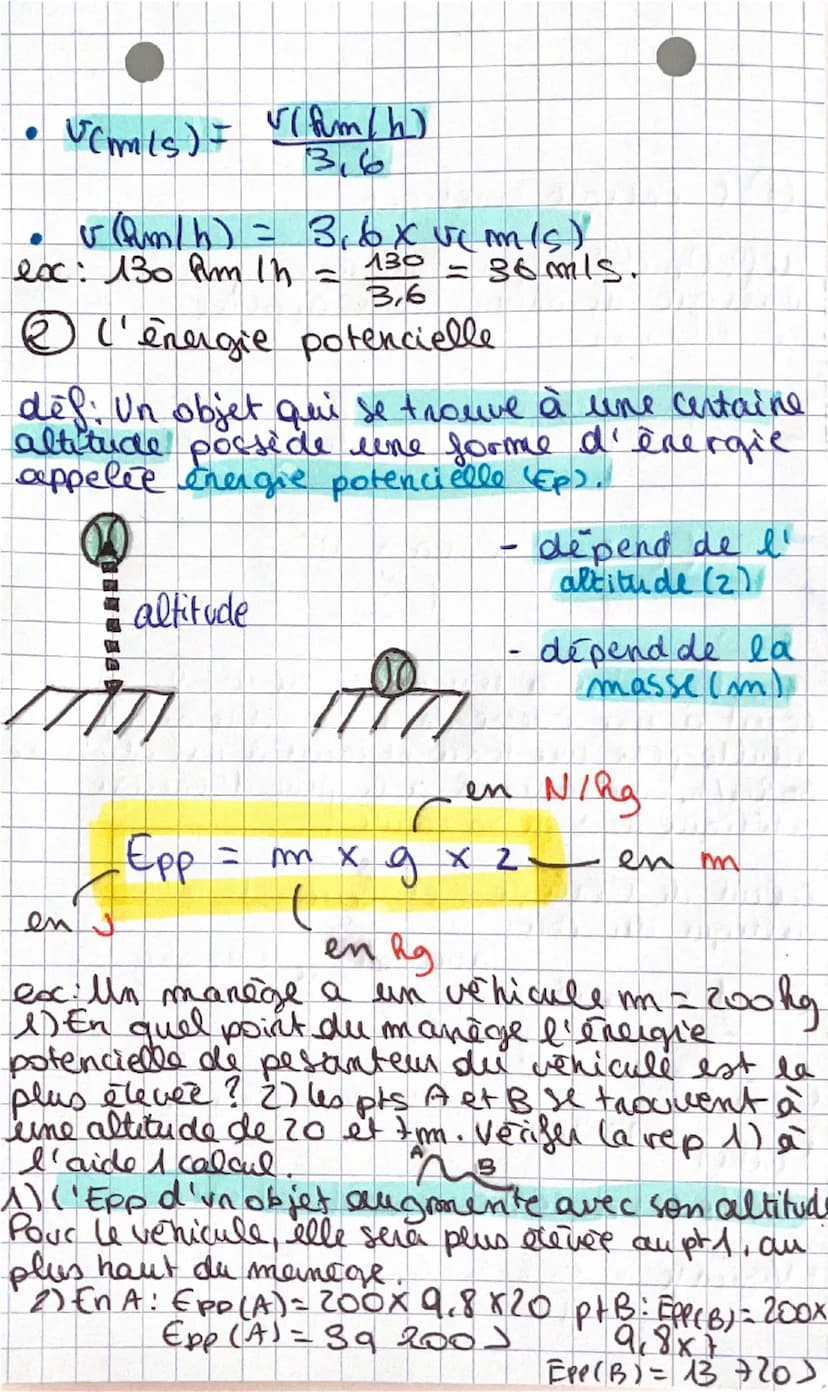 • v(m/s) = v(km/h) / 3,6
• v(km/h) = 3,6 x v(m/s)
ex: 130 km/h = 130/3,6 = 36 m/s.
② l'énergie potencielle
déf: Un objet qui se trouve à une certaine
altitude possède une forme d'énergie
appelée énergie potencielle (Ep).
- dépend de l'
altitude (z)
altitude
- dépend de la
masse (m)
en N/kg
Epp = m x g x z
en m
en J
en kg
ex: Un manège a un véhicule m = 200 kg
1) En quel point du manège l'énergie
potencielle de pesanteur du véhicule est la
plus élevée ? 2) les pts A et B se trouvent à
une altitude de 20 et 7m. Vérifier la rep 1) à
l'aide 1 calcul.
A B
1) l'Epp d'un objet augmente avec son altitude
Pour le véhicule, elle sera plus élevée au pt 1, au
plus haut du manège.
2) En A: Epp(A) = 200 x 9,8 x 20 pt B: Epp(B) = 200 x
Epp(A) = 39 200 J 9,8 x 7
Epp(B) = 13 720 J